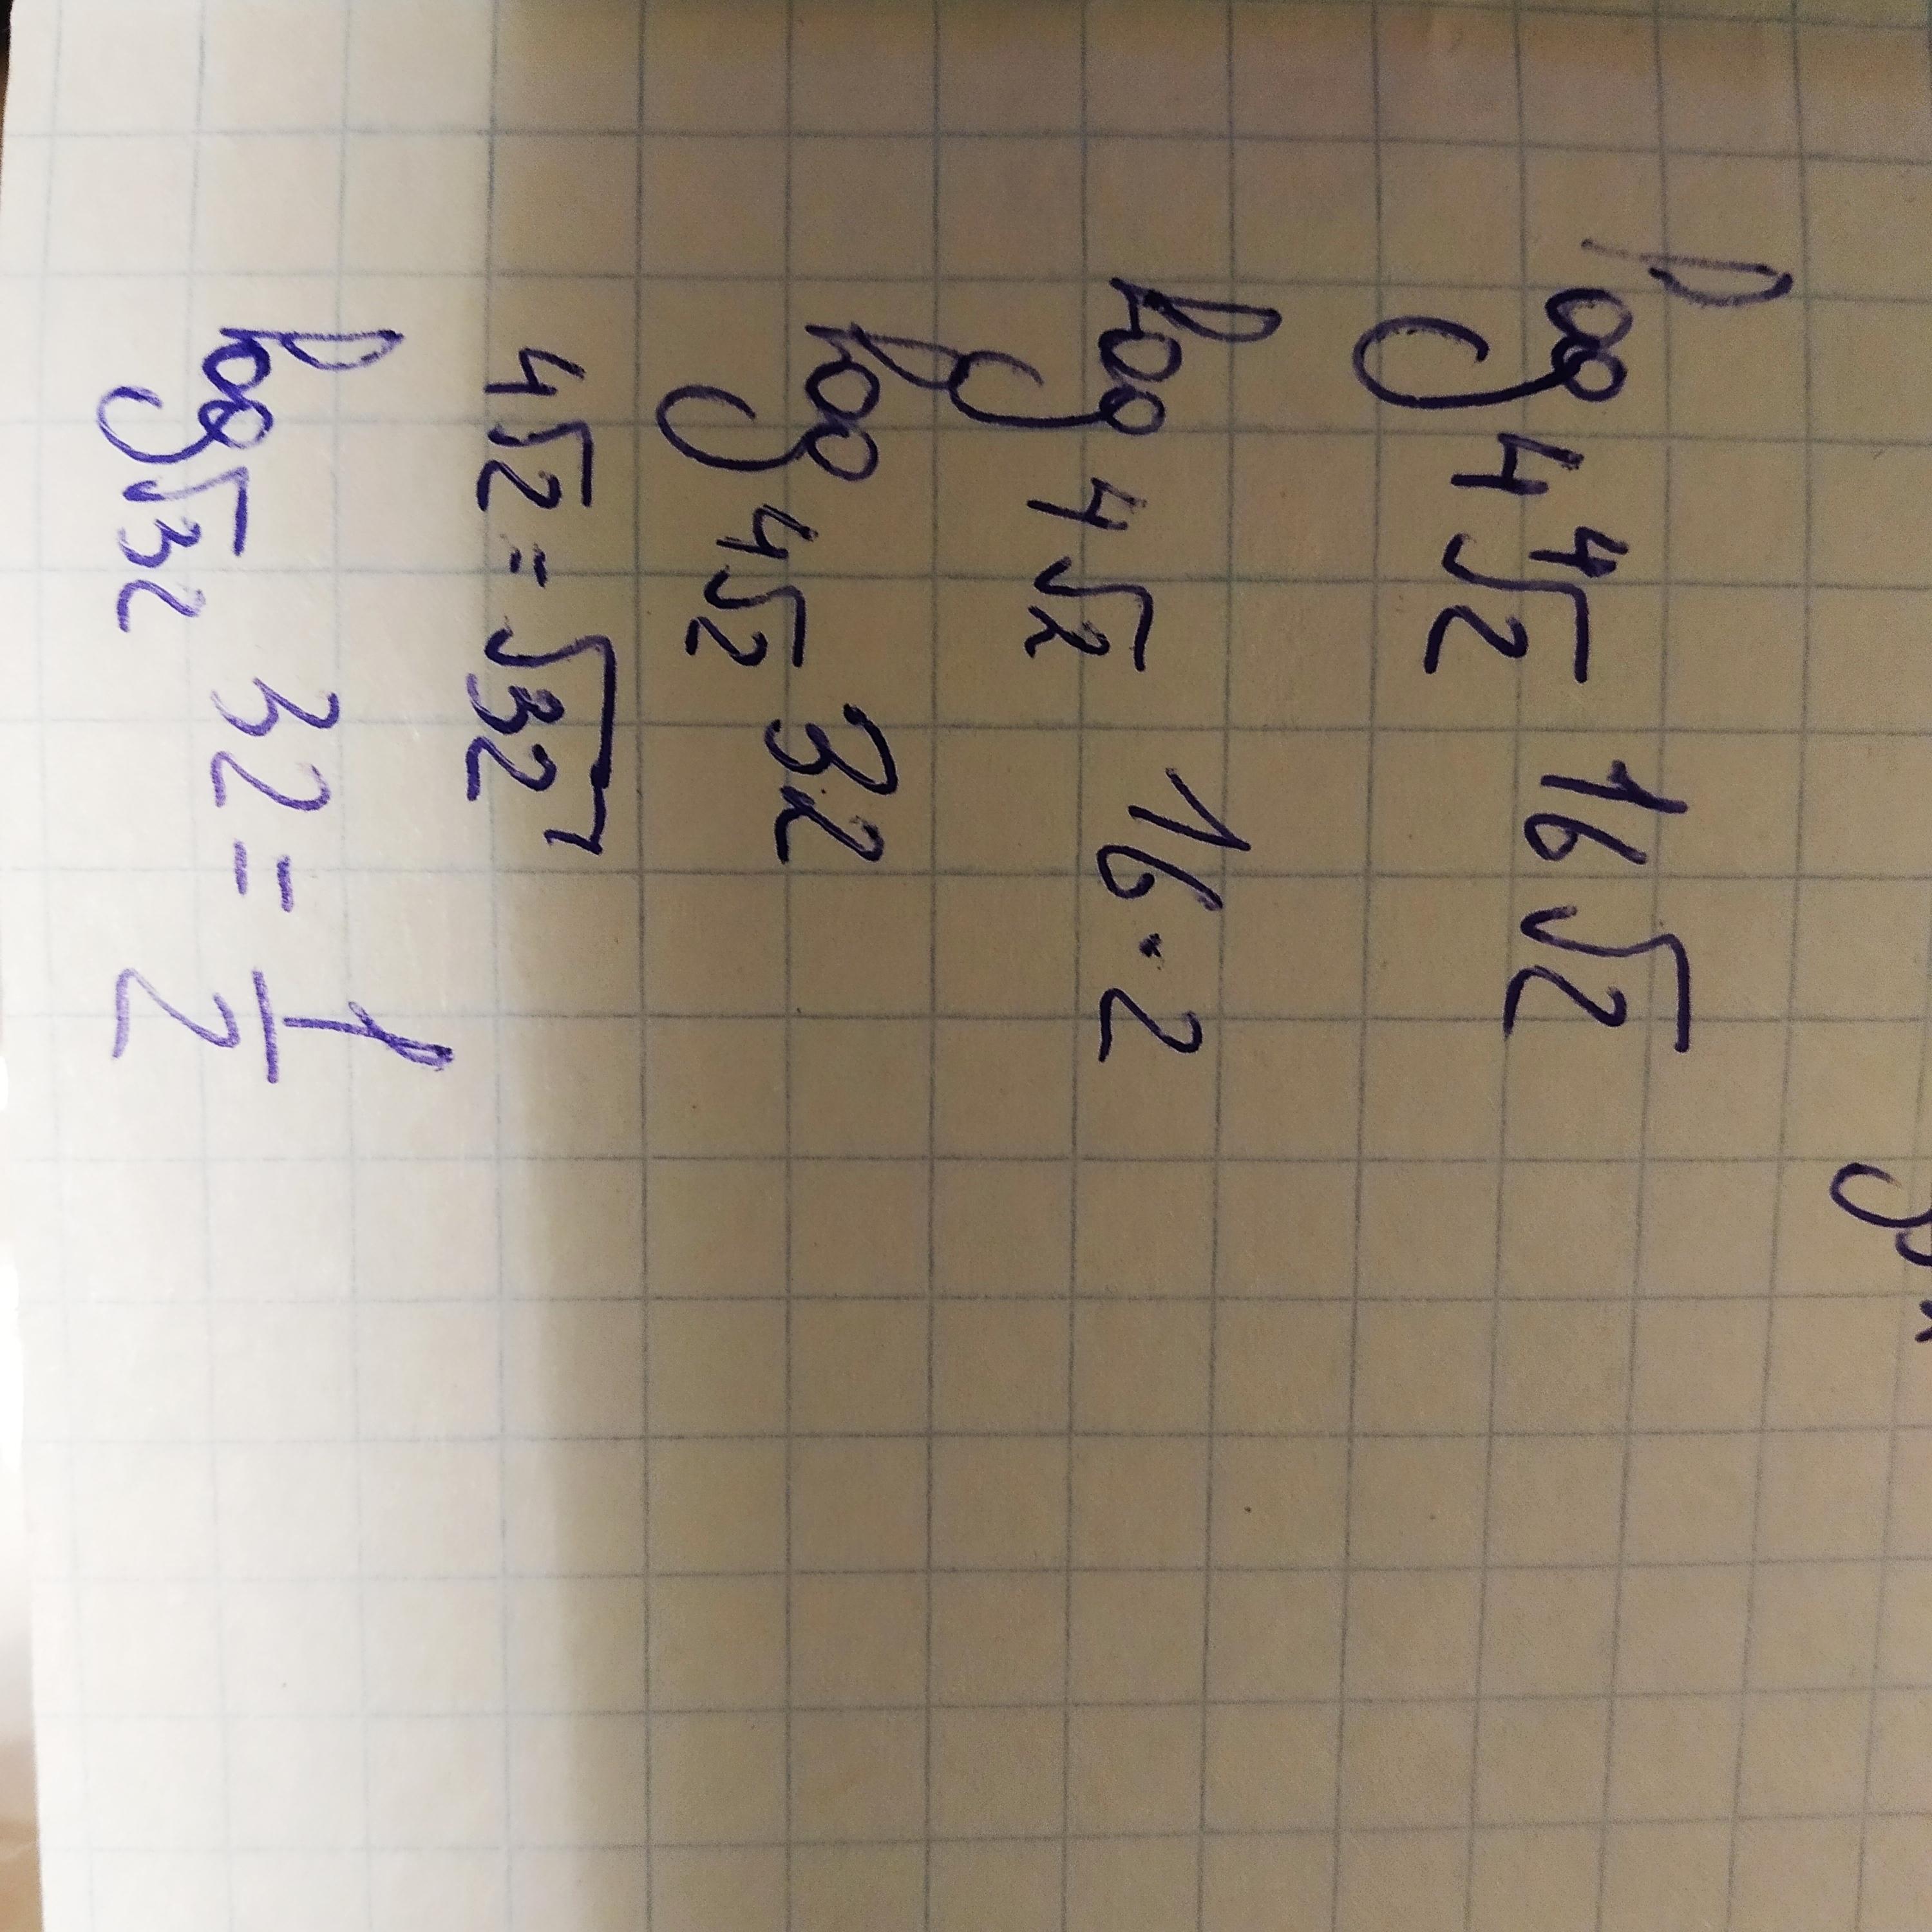 log 4 ⁴√2 16√2
log 4√2 16·2
log 4√2 32
4√2 = √32
log √32 32 = 1/2